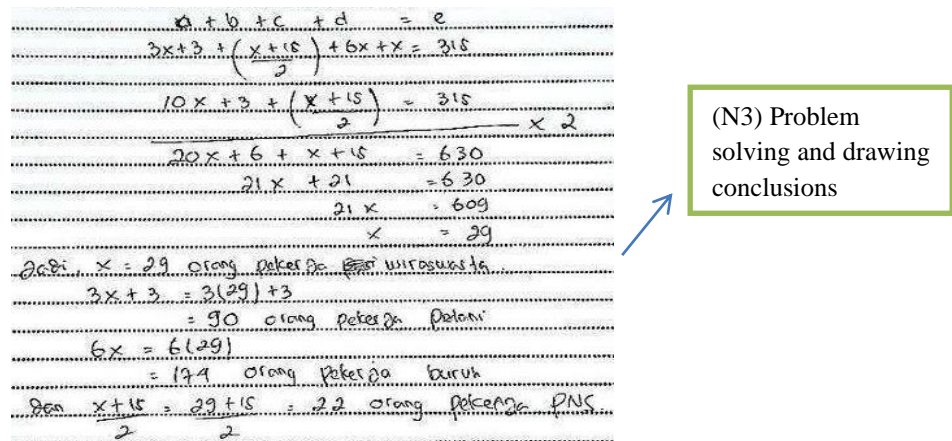 a + b + c + d = e
3x+3 + (x+15/2) + 6x + x = 315
10x + 3 + (x+15/2) = 315
x 2
20x + 6 + x + 15 = 630
21x + 21 = 630
21x = 609
x = 29
Jadi, x = 29 orang pekerja wiraswasta.
3x + 3 = 3(29)+3
= 90 orang pekerja petani
6x = 6(29)
= 174 orang pekerja buruh
dan x+15/2 = 29+15/2 = 22 orang pekerja PNS.
(N3) Problem
solving and drawing
conclusions